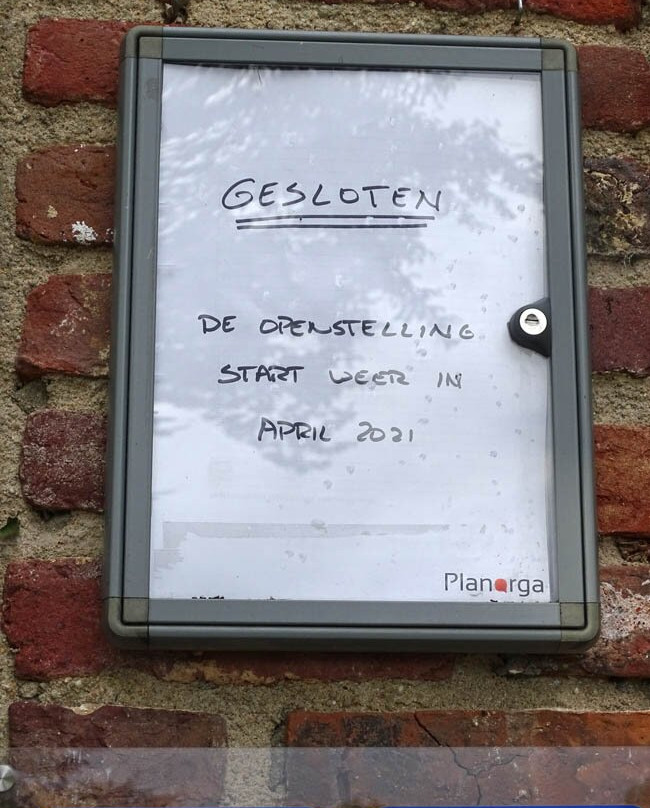 GESLOTEN
DE OPENSTELLING
START WEER IN
APRIL 2021
Planorga